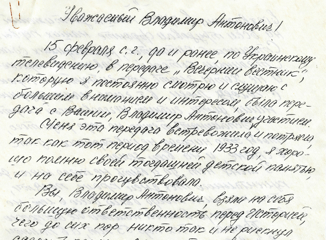 Уважаемый Владимир Антонович!
15 февраля с.г., да и ранее, по Украинскому
телевидению в передаче „Вечерний вестник",
которую я постоянно смотрю и слушаю с
большим вниманием и интересом, была пере-
дача с Вашим, Владимир Антонович участием.
Меня эта передача встревожила и потрясла
так как тот период времени 1933 год, я хоро-
шо помню своей тогдашней детской памятью
и на себе прочувствовала.
Вы, Владимир Антонович, взяли на себя
большую ответственность перед Историей,
чего до сих пор никто так и не рискнул